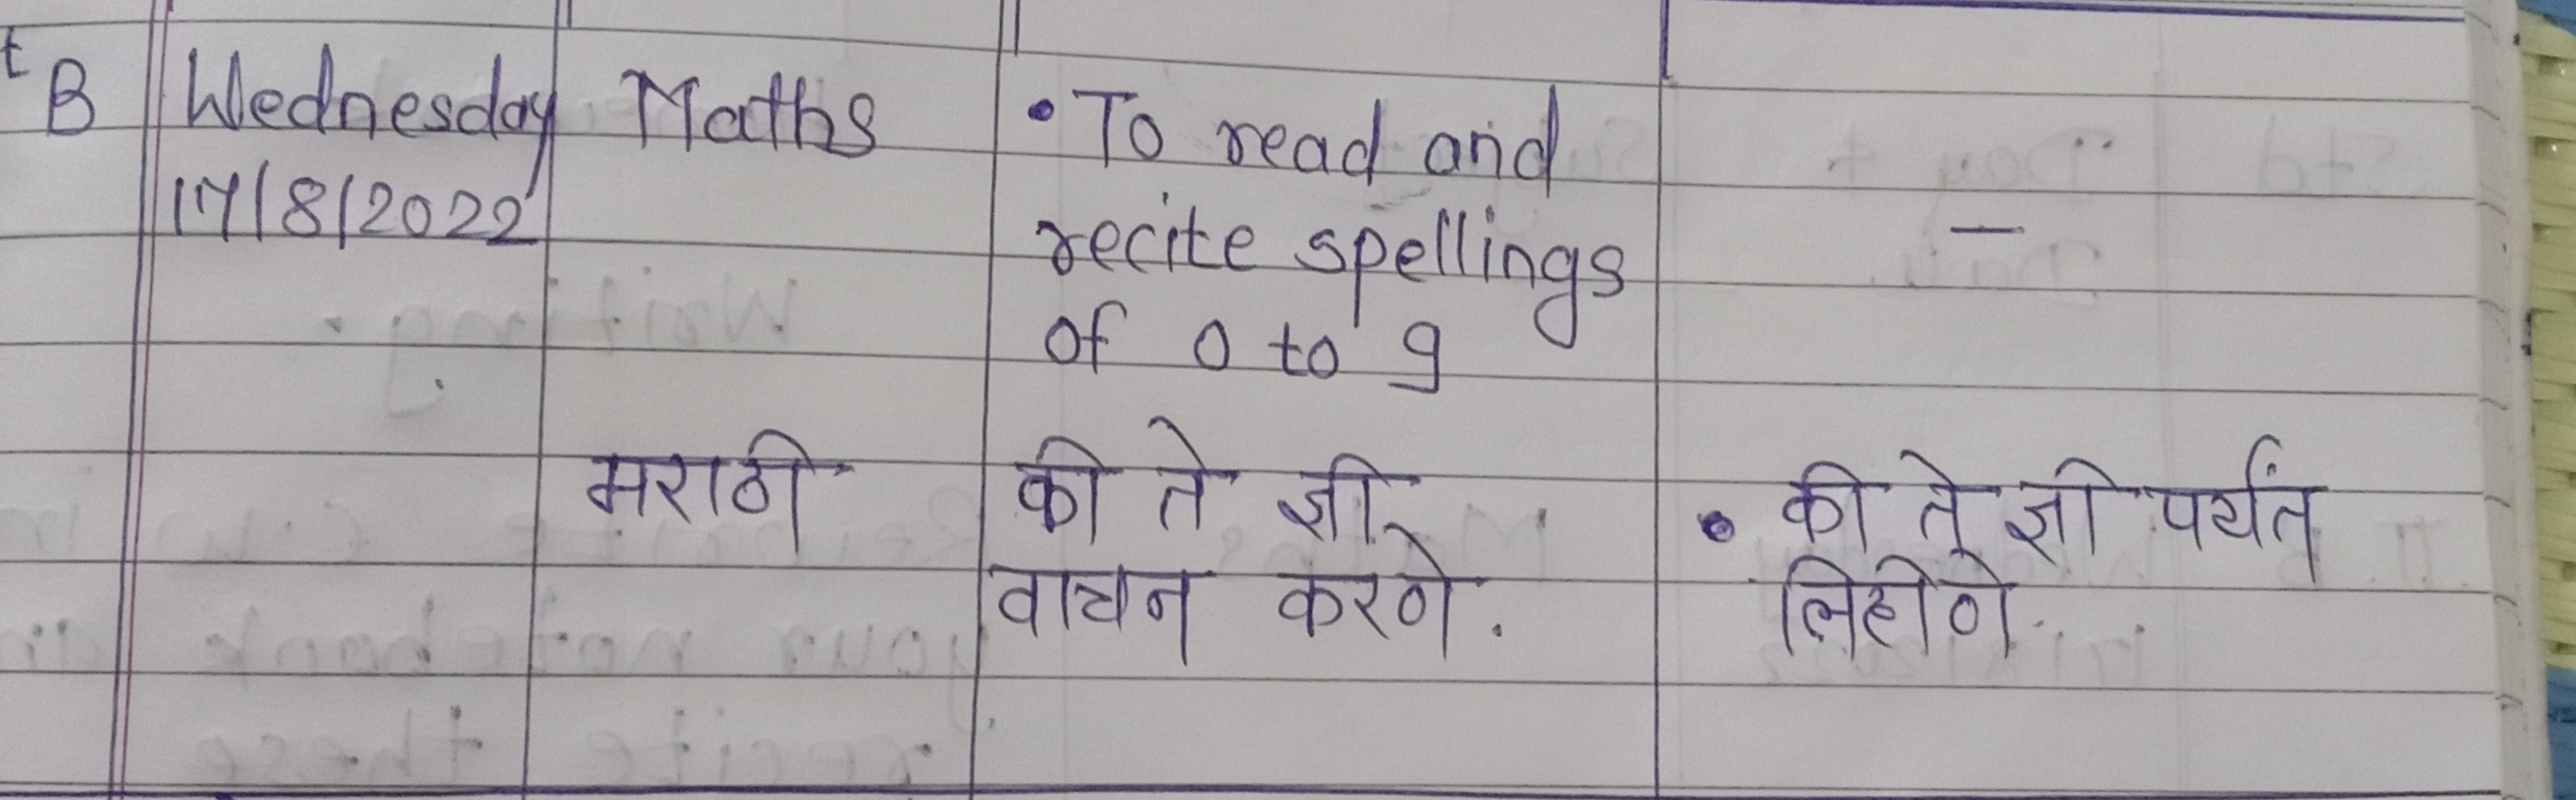 B Wednesday Maths • To read and
17/8/2022 recite spellings —
of 0 to 9
मराठी की ते ज्ञी • की ते ज्ञी पर्यंत
वाचन करणे. लिहीणे.